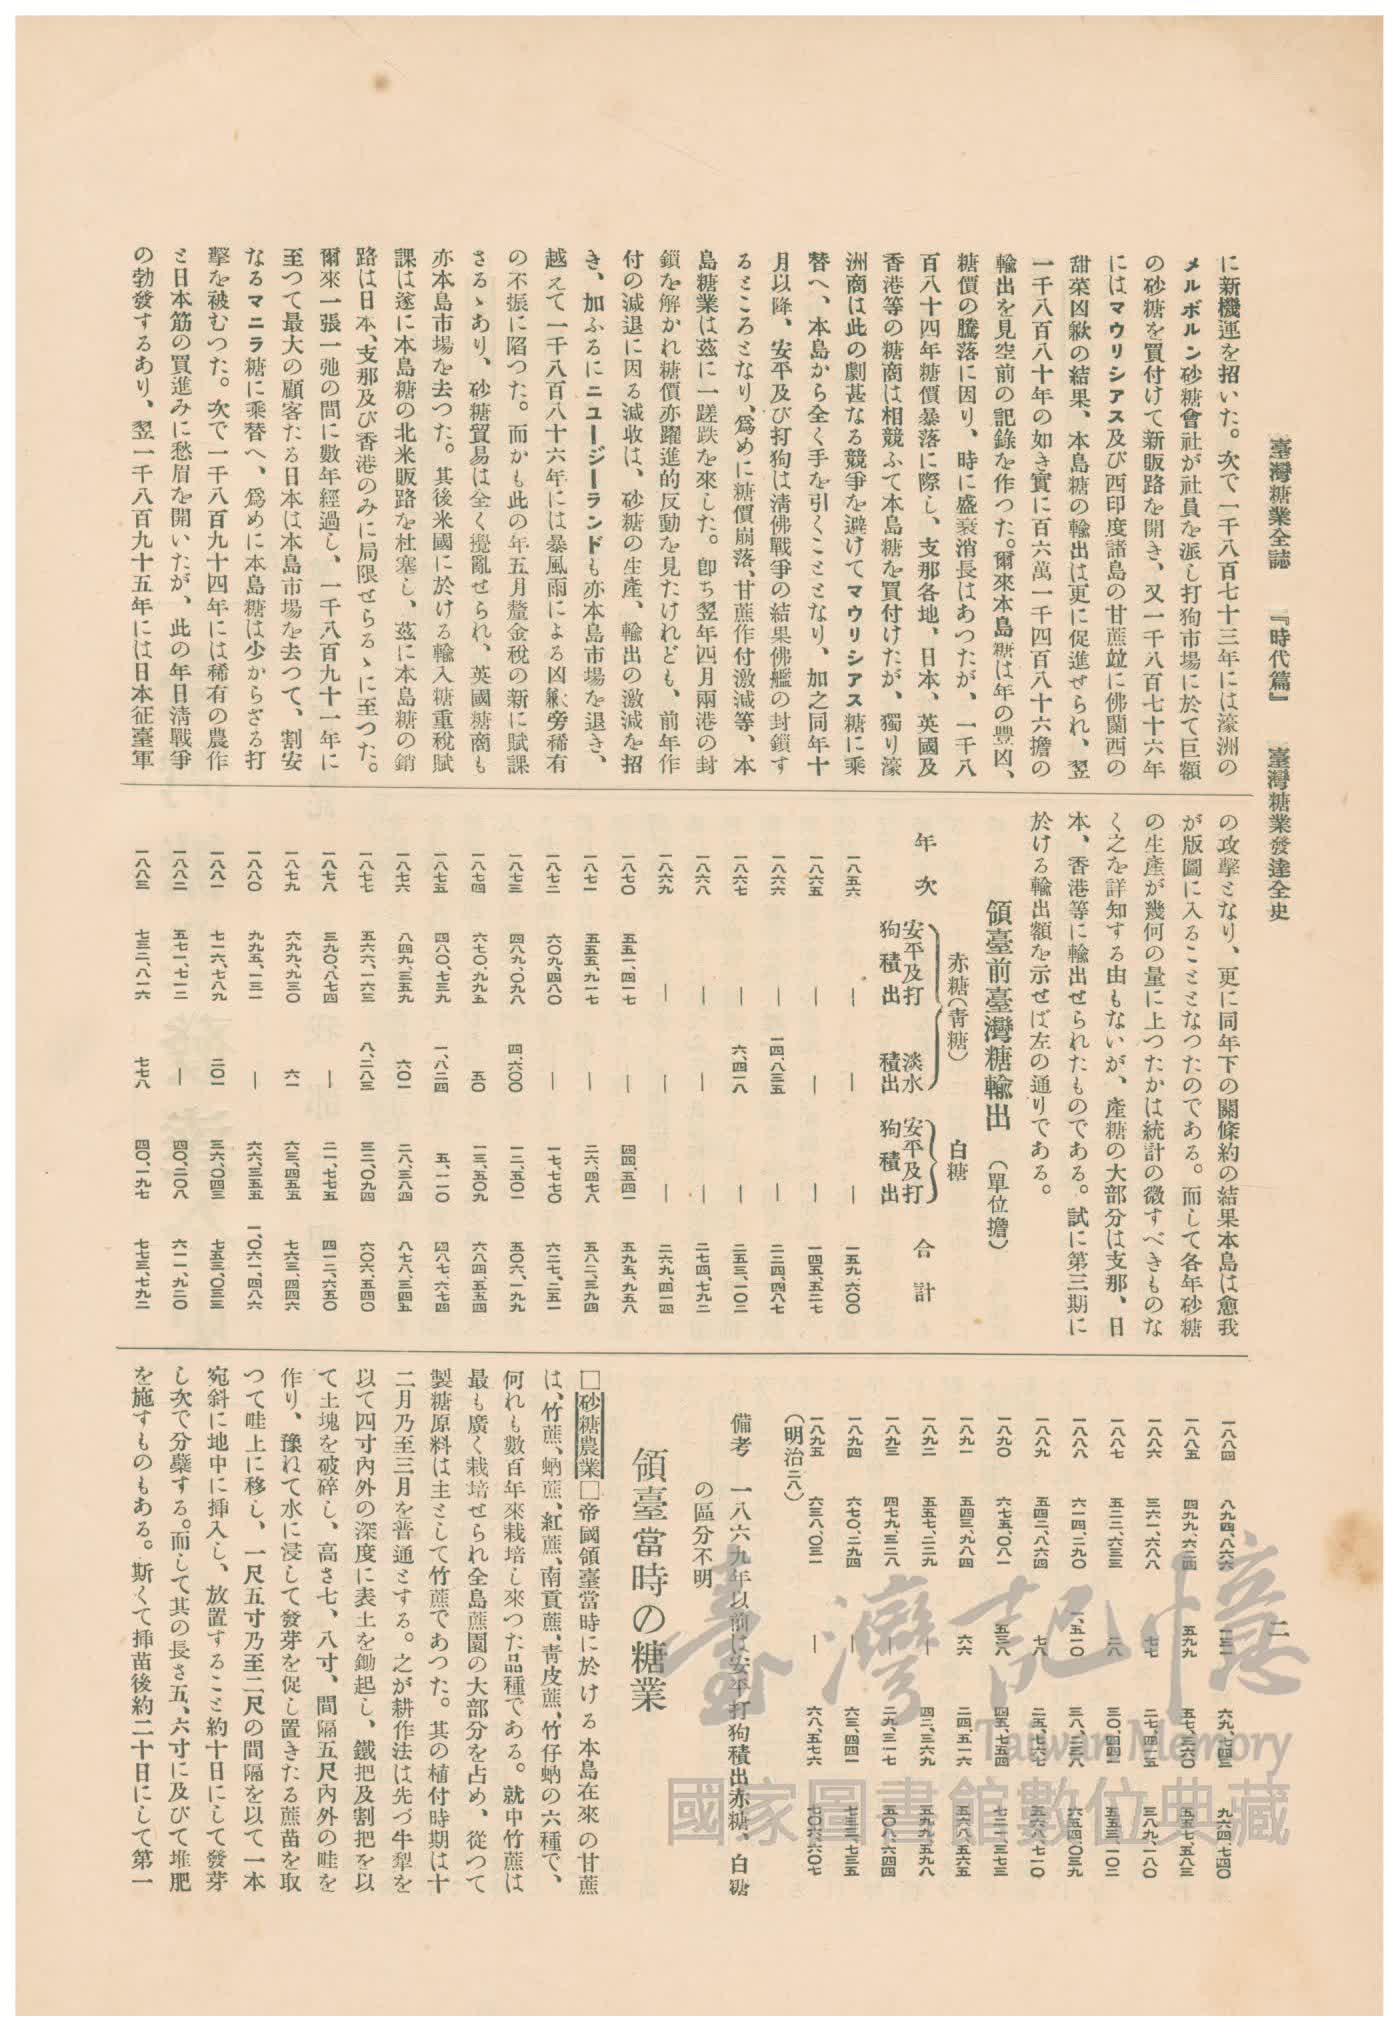 臺灣糖業全誌 『時代篇』 臺灣糖業發達全史
二
に新機運を招いた。次で一千八百七十三年には濠洲の
メルボルン砂糖會社が社員を派し打狗市場に於て巨額
の砂糖を買付けて新販路を開き、又一千八百七十六年
にはマウリシアス及び西印度諸島の甘蔗竝に佛蘭西の
甜菜凶歉の結果、本島糖の輸出は更に促進せられ、翌
一千八百八十年の如き實に百六萬一千四百八十六擔の
輸出を見空前の記錄を作つた。爾來本島糖は年の豐凶、
糖價の騰落に因り、時に盛衰消長はあつたが、一千八
百八十四年糖價暴落に際し、支那各地、日本、英國及
香港等の糖商は相競ふて本島糖を買付けたが、獨り濠
洲商は此の劇甚なる競爭を避けてマウリシアス糖に乘
替へ、本島から全く手を引くこととなり、加之同年十
月以降、安平及び打狗は淸佛戰爭の結果佛艦の封鎖す
るところとなり、爲めに糖價崩落、甘蔗作付激減等、本
島糖業は茲に一蹉跌を來した。卽ち翌年四月兩港の封
鎖を解かれ糖價亦躍進的反動を見たけれども、前年作
付の減退に因る減收は、砂糖の生產、輸出の激減を招
き、加ふるにニユージーランドも亦本島市場を退き、
越えて一千八百八十六年には暴風雨による凶歉旁稀有
の不振に陷つた。而かも此の年五月釐金稅の新に賦課
さるゝあり、砂糖貿易は全く攪亂せられ、英國糖商も
亦本島市場を去つた。其後米國に於ける輸入糖重稅賦
課は遂に本島糖の北米販路を杜塞し、茲に本島糖の銷
路は日本、支那及び香港のみに局限せらるゝに至つた。
爾來一張一弛の間に數年經過し、一千八百九十一年に
至つて最大の顧客たる日本は本島市場を去つて、割安
なるマニラ糖に乘替へ、爲めに本島糖は少からざる打
擊を被むつた。次で一千八百九十四年には稀有の農作
と日本筋の買進みに愁眉を開いたが、此の年日淸戰爭
の勃發するあり、翌一千八百九十五年には日本征臺軍
の攻擊となり、更に同年下の關條約の結果本島は愈我
が版圖に入ることとなつたのである。而して各年砂糖
の生產が幾何の量に上つたかは統計の徵すべきものな
く之を詳知する由もないが、產糖の大部分は支那、日
本、香港等に輸出せられたものである。試に第三期に
於ける輸出額を示せば左の通りである。
領臺前臺灣糖輸出 (單位擔)
年次 赤糖(靑糖) 安平及打狗積出 淡水積出 白糖 安平及打狗積出 合計
一八五六 ― ― ― 一五九、六〇〇
一八六五 ― ― ― 一四五、五二七
一八六六 ― 一四、八三五 ― 二二四、四八七
一八六七 ― 六、四一八 ― 二五三、一〇二
一八六八 ― ― ― 二七四、七九二
一八六九 ― ― ― 二六九、四一四
一八七〇 五五一、四一七 ― 四四、五四一 五九五、九五八
一八七一 五五五、九一七 ― 二六、四七八 五八二、三九四
一八七二 六〇九、四八〇 ― 一七、七七〇 六二七、二五一
一八七三 四八九、〇九八 四、六〇〇 一二、五〇一 五〇六、一九九
一八七四 六七〇、九九五 五〇 一三、五〇九 六八四、五五四
一八七五 四八〇、七三九 一、八二四 五、一一〇 四八七、六七四
一八七六 八四九、三五九 六〇一 二八、三八四 八七八、三四五
一八七七 五六六、一六三 八、二八三 三二、〇九四 六〇六、五四〇
一八七八 三九〇、八七四 ― 二一、七七五 四一二、六五〇
一八七九 六九九、九三〇 六一 六三、四五五 七六三、四四六
一八八〇 九九五、一三一 ― 六六、三五五 一、〇六一、四八六
一八八一 七一六、七八九 二〇一 三六、〇四三 七五三、〇三三
一八八二 五七一、七一二 ― 四〇、二〇八 六一一、九二〇
一八八三 七三二、八一六 七七八 四〇、一九七 七七三、七九二
一八八四 八九四、八六六 一三一 六九、七四三 九六四、七四〇
一八八五 四九九、六二四 五九九 五七、三六〇 五五七、五八三
一八八六 三六一、六八八 七七 二七、四一五 三八九、一八〇
一八八七 五二二、六三三 二八 三〇、四四一 五五三、一〇二
一八八八 六一四、二九〇 一、五一〇 三八、二三八 六五四、〇三九
一八八九 五四二、八六四 七八 二五、七六七 五六八、七一〇
一八九〇 六七五、〇八一 五三八 四五、七五四 七二一、三七三
一八九一 五四三、九八四 六六 二四、五一六 五六八、五六五
一八九二 五五七、二二九 ― 四二、三六九 五九九、五九八
一八九三 四七九、三二八 ― 二九、三一七 五〇八、六四四
一八九四 六七〇、二九四 ― 六三、四四一 七三三、七三五
一八九五 (明治二八) 六三八、〇三一 ― 六八、五七六 七〇六、六〇七
備考 一八六九年以前は安平打狗積出赤糖、白糖
の區分不明
領臺當時の糖業
□砂糖農業□帝國領臺當時に於ける本島在來の甘蔗
は、竹蔗、蚋蔗、紅蔗、南貢蔗、靑皮蔗、竹仔蚋の六種で、
何れも數百年來栽培し來つた品種である。就中竹蔗は
最も廣く栽培せられ全島蔗園の大部分を占め、從つて
製糖原料は主として竹蔗であつた。其の植付時期は十
二月乃至三月を普通とする。之が耕作法は先づ牛犂を
以て四寸內外の深度に表土を鋤起し、鐵把及割把を以
て土塊を破碎し、高さ七、八寸、間隔五尺內外の畦を
作り、豫れて水に浸して發芽を促し置きたる蔗苗を取
つて畦上に移し、一尺五寸乃至二尺の間隔を以て一本
宛斜に地中に揷入し、放置すること約十日にして發芽
し次で分蘖する。而して其の長さ五、六寸に及びて堆肥
を施すものもある。斯くて揷苗後約二十日にして第一
臺灣記憶
Taiwan Memory
國家圖書館數位典藏